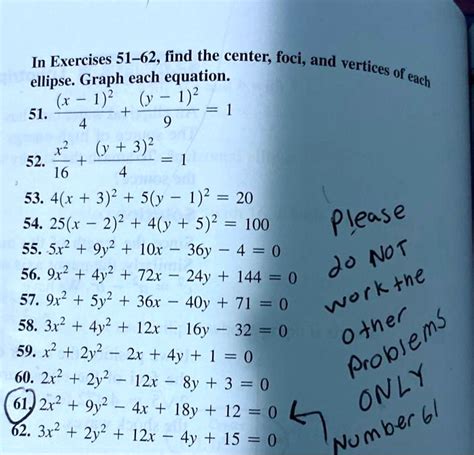 In Exercises 51–62, find the center, foci, and vertices of each
ellipse. Graph each equation.
51. (x − 1)²/4 + (y − 1)²/9 = 1
52. x²/16 + (y + 3)²/4 = 1
53. 4(x + 3)² + 5(y − 1)² = 20
54. 25(x − 2)² + 4(y + 5)² = 100
55. 5x² + 9y² + 10x − 36y − 4 = 0
56. 9x² + 4y² + 72x − 24y + 144 = 0
57. 9x² + 5y² + 36x − 40y + 71 = 0
58. 3x² + 4y² + 12x − 16y − 32 = 0
59. x² + 2y² − 2x + 4y + 1 = 0
60. 2x² + 2y² − 12x − 8y + 3 = 0
61. 2x² + 9y² − 4x + 18y + 12 = 0
62. 3x² + 2y² + 12x − 4y + 15 = 0
Please
do NOT
work the
other
problems
ONLY
Number 61